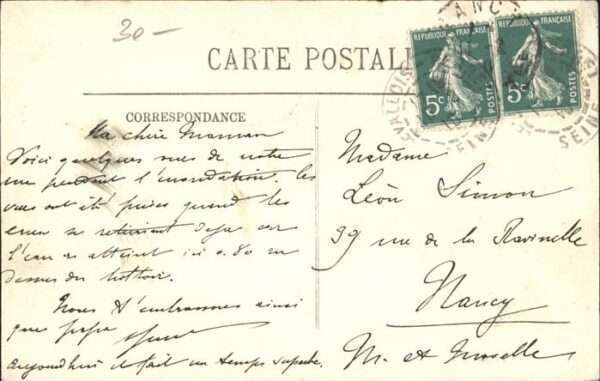 30-
CARTE POSTALE
RÉPUBLIQUE FRANÇAISE
5c POSTES
RÉPUBLIQUE FRANÇAISE
5c POSTES
LEVALLOIS
SEINE
SEINE
CORRESPONDANCE
Ma chère Maman
Voici quelques vues de notre
rue pendant l'inondation. les
vues ont été prises quand les
eaux se retiraient déja car
l'eau a atteint ici 0.80 au
dessus du trottoir.
Nous t'embrassons ainsi
que papa
aujourd'hui il fait un temps superbe.
Madame
Léon Simon
39 rue de la Ravinelle
Nancy
M. et Moselle